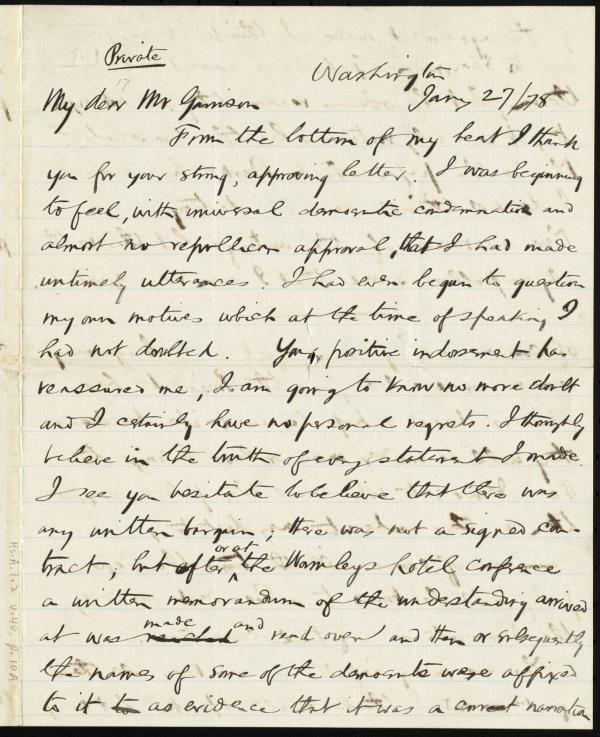 Private
Washington
17
My dear Mr. Garrison
Jany 27/78
From the bottom of my heart I thank
you for your strong, approving letter. I was beginning
to feel, with universal democratic condemnation and
almost no republican approval, that I had made
untimely utterances. I had even begun to question
my own motives which at the time of speaking I
had not doubted. Your positive indorsement has
reassured me, I am going to know no more doubt
and I certainly have no personal regrets. I thoroughly
believe in the truth of every statement I made.
I see you hesitate to believe that there was
any written bargain; there was not a signed con-
tract, but after or at the Wormleys hotel conference
a written memorandum of the understanding arrived
at was reached made and read over and then or subsequently
the names of some of the democrats were affixed
to it to as evidence that it was a correct narration
Ms.A.1.2 v.40, p.10A